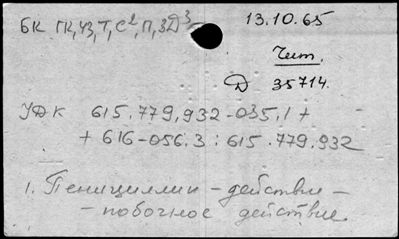 БК ГК, ЧЗ, Т, С², П, ЗД³
13.10.65
Чит.
Д 35714.
УДК 615.779.932-035.1 +
+ 616-056.3 : 615.779.932
1. Пенициллин - действие -
- побочное действие.